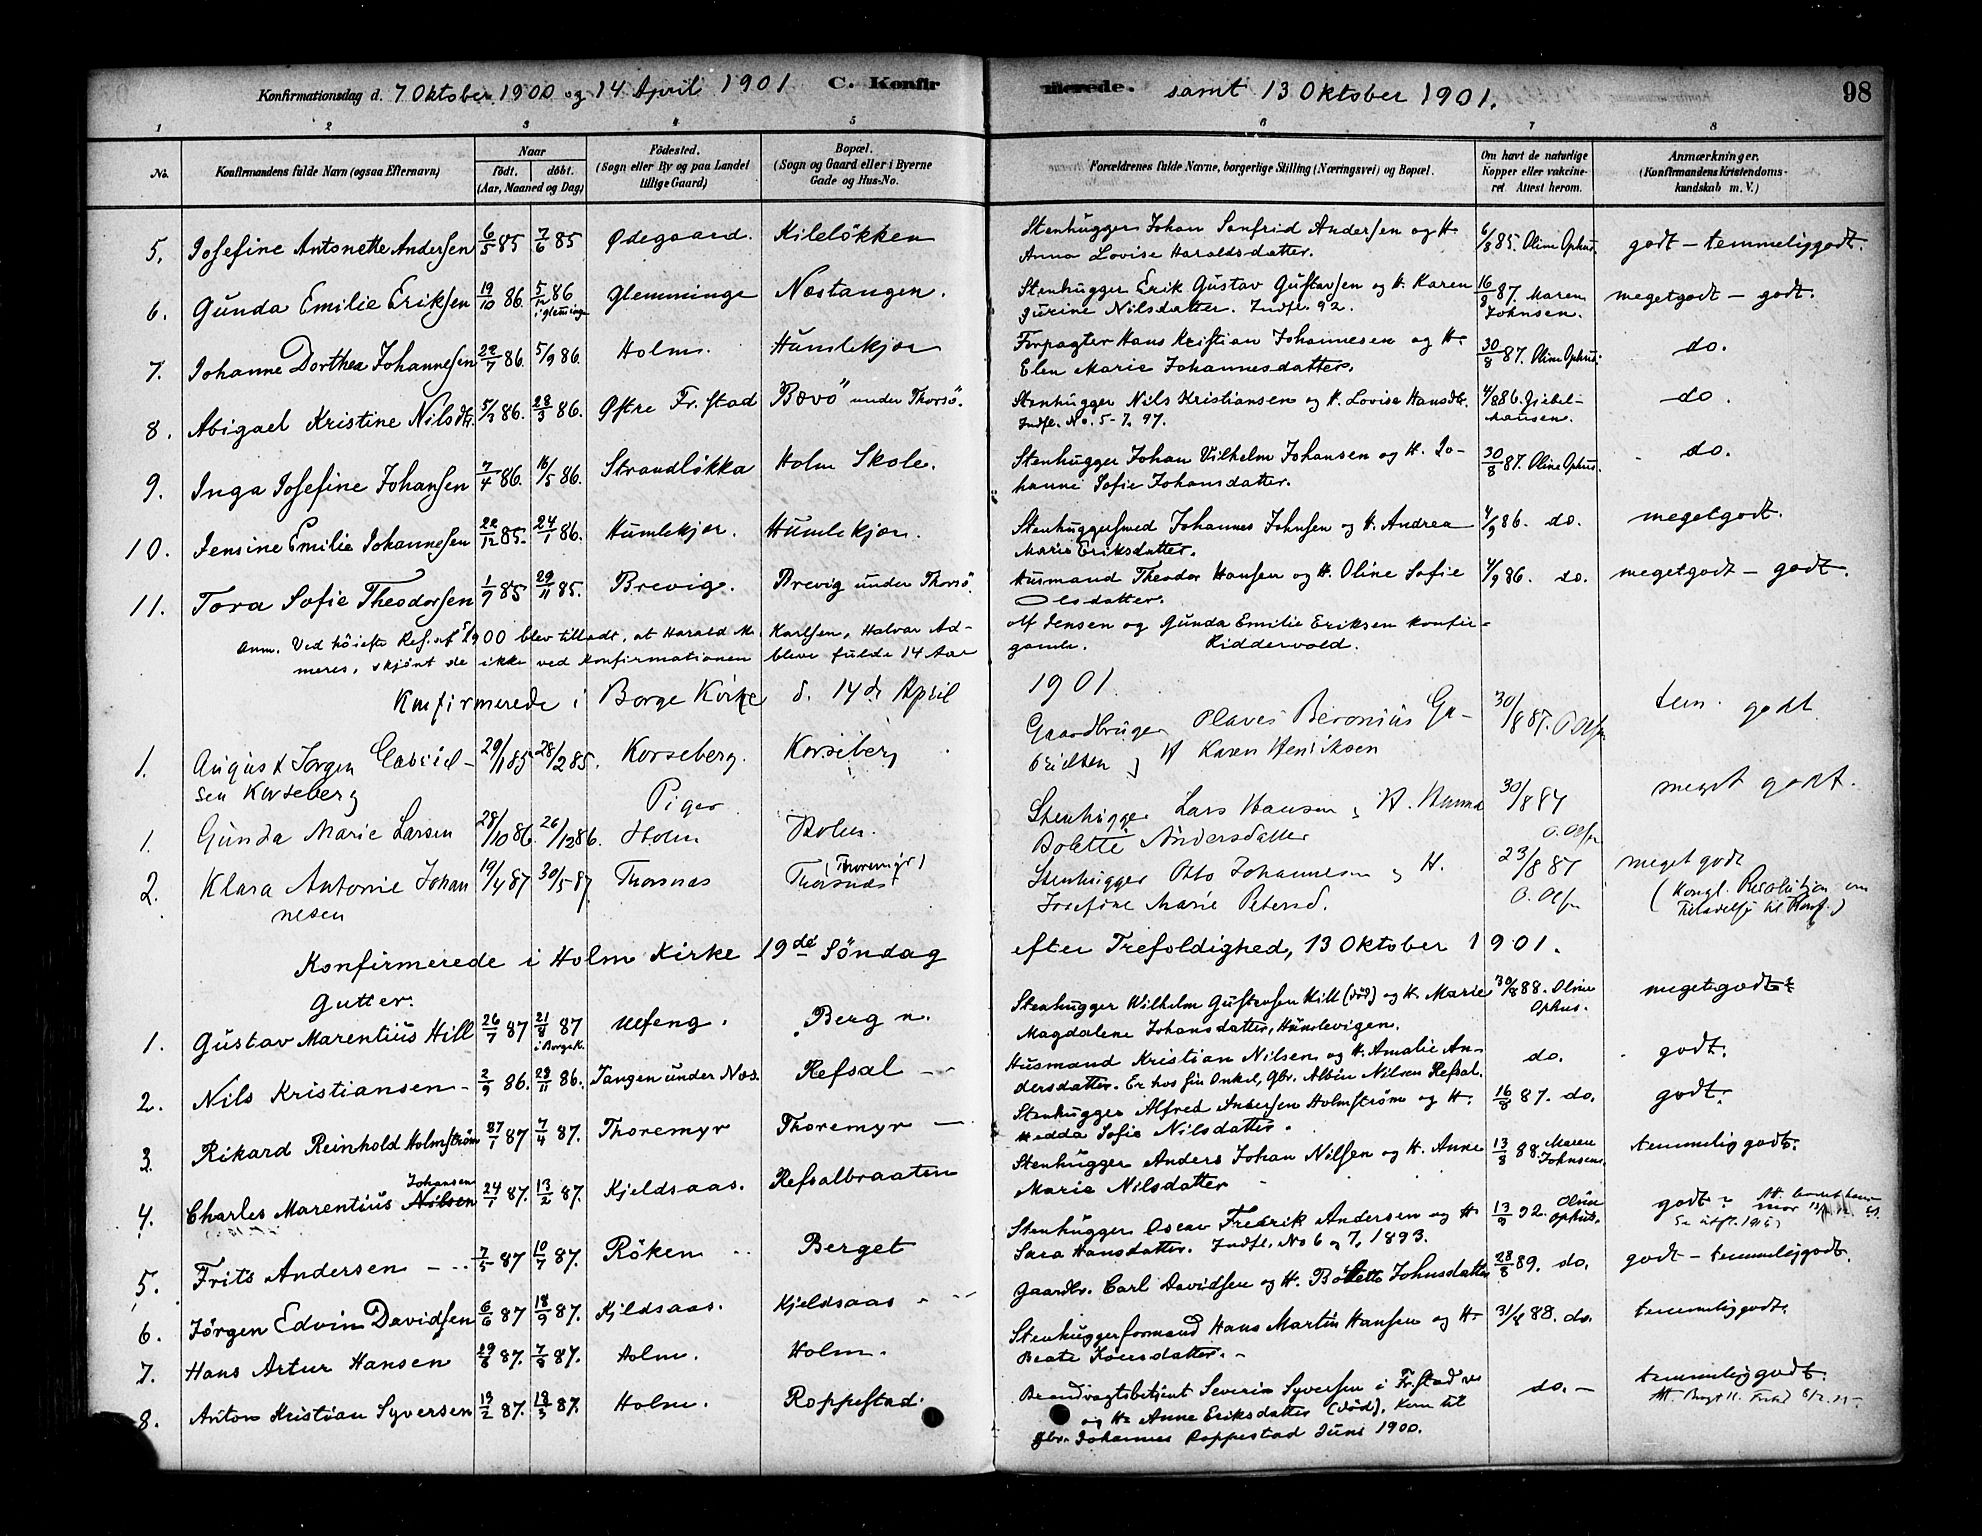 Konfirmationsdag d. 7 Oktober 1900 og 14 April 1901 C. Konfirmerede. samt 13 Oktober 1901. 98
1 2 3 4 5 6 7 8
No. Konfirmandens fulde Navn (ogsaa Efternavn) Naar født. døbt. (Aar, Maaned og Dag) Fødested. (Sogn eller By og paa Landet tillige Gaard) Bopæl. (Sogn og Gaard eller i Byerne Gade og Hus-No. Forældrenes fulde Navne, borgerlige Stilling (Næringsvei) og Bopæl. Om havt de naturlige Kopper eller vakcineret. Attest herom. Anmærkninger. (Konfirmandens Kristendomskundskab m. V.)
5. Josefine Antonette Andersen 6/5 85 7/6 85 Ødegaard. Kileløkken Stenhugger Johan Sanfrid Andersen og H. 6/8 85. Oline Ophus. godt - temmelig godt.
Anna Lovise Haraldsdatter.
6. Gunda Emilie Eriksen 19/10 86. 5/12 86 i Glemminge Glemminge Næstangen. Stenhugger Erik Gustav Gustavsen og H. Karen 16/8 87. Maren Johnsen. megetgodt - godt.
Gurine Nilsdatter. Indfl. 92.
7. Johanne Dorthea Johannesen 22/7 86. 5/9 86. Holm. Humlekjær Forpagter Hans Kristian Johannesen og H. 30/8 87. Oline Ophus. do.
Elen Marie Johannesdatter.
8. Abigael Kristine Nilsdtr. 5/2 86. 28/3 86. Østre Fr.stad Bævö under Thorsö. Stenhugger Nils Kristiansen og H. Lovise Hansdtr. 4/8 86. Giebelhausen. do.
Indfl. No. 5-7. 97.
9. Inga Josefine Johansen 7/4 86. 16/5 86. Strandløkka Holm Skole. Stenhugger Johan Vilhelm Johansen og H. Jo- 30/8 87. Oline Ophus. do.
hanne Sofie Johansdatter.
10. Jensine Emilie Johannesen 22/12 85. 24/1 86. Humlekjær. Humlekjær. Stenhuggersmed Johannes Johnsen og H. Andrea 4/9 86. do. megetgodt.
Marie Eriksdatter.
11. Tora Sofie Theodorsen 1/7 85 29/11 85. Brevig. Brevig under Thorsö. Husmand Theodor Hansen og H. Oline Sofie 4/9 86. do. megetgodt - godt.
Olsdatter.
Anm. Ved høieste Res. af 5/ 1900 blev tilladt, at Harald M. Karlsen, Halvar Ad- olf Jensen og Gunda Emilie Eriksen konfir-
meres, skjønt de ikke ved Konfirmationen bleve fulde 14 Aar gamle. Riddervold.
Konfirmerede i Borge Kirke d. 14de April 1901
1. August Jørgen Gabriel- 29/1 85 28/2 85. Korseberg. Korseberg Gaardbruger Olaves Beronius Ga- 30/8 87. O. Op tem. godt
sen Korseberg brielsen og H Karen Henriksen
Piger
1. Gunda Marie Larsen 28/10 86. 26/12 86. Holm Holm. Stenhugger Lars Hansen og H. Hanna 30/8 87 O. Op meget godt.
Bolette Andersdatter
2. Klara Antonie Johan 19/4 87 30/5 87 Thorsnæs Thorsnæs (Thoremyr) Stenhugger Otto Johannesen og H. 23/8 87 O. Op meget godt
nesen Josefine Marie Petersd. (Kongl. Resolution om Tilladelse til Konf.)
Konfirmerede i Holm Kirke 19de Söndag efter Trefoldighed, 13 Oktober 1901.
Gutter.
1. Gustav Marentius Hill 26/7 87 21/8 87 i Borge K. Ulfeng. Berg n. Stenhugger Wilhelm Gustavsen Hill (död) og H. Marie 30/8 88. Oline Ophus. megetgodt.
Magdalene Johansdatter, Humlevigen.
2. Nils Kristiansen - 2/9 86. 28/11 86. Tangen under Næs. Refsal - Husmand Kristian Nilsen og H. Amalie An- do. godt.
dersdatter. Er hos sin Onkel, Gbr. Albin Nilsen Refsal.
3. Rikard Reinhold Holmström 27/1 87 7/4 87. Thoremyr Thoremyr - Stenhugger Alfred Andersen Holmström og H. 16/8 87. do. godt.
Hedda Sofie Nilsdatter.
4. Charles Marentius Nilsen Johansen 24/1 87. 13/2 87. Kjeldsaas. Refsalbraaten Stenhugger Anders Johan Nilsen og H. Anne 13/8 88. Maren Johnsen. temmelig godt.
Marie Nilsdatter
5. Frits Andersen - 7/5 87 10/7 87. Röken Berget Stenhugger Oscar Fredrik Andersen og H. 13/9 92. Oline Ophus. godt.
Sara Hansdatter. Indfl. No 6 og 7, 1893.
6. Jörgen Edvin Davidsen 6/6 87 18/9 87. Kjeldsaas. Kjeldsaas Gaardbr. Carl Davidsen og H. Bolette Johnsdatter 28/8 89. do. godt - temmeliggodt.
7. Hans Artur Hansen 29/6 87. 7/8 87. Holm. Holm. Stenhuggerformand Hans Martin Hansen og H. 31/8 88. do. temmeliggodt.
Beate
8. Anton Kristian Syversen 13/2 87. 13/3 87. Holm. Roppestad. Brandvagtsbetjent Severin Syversen i Fr.stad do. - temmeliggodt.
og H. Anne Eriksdatter (död). Kom til
Gbr. Johannes Roppestad Juni 1900.